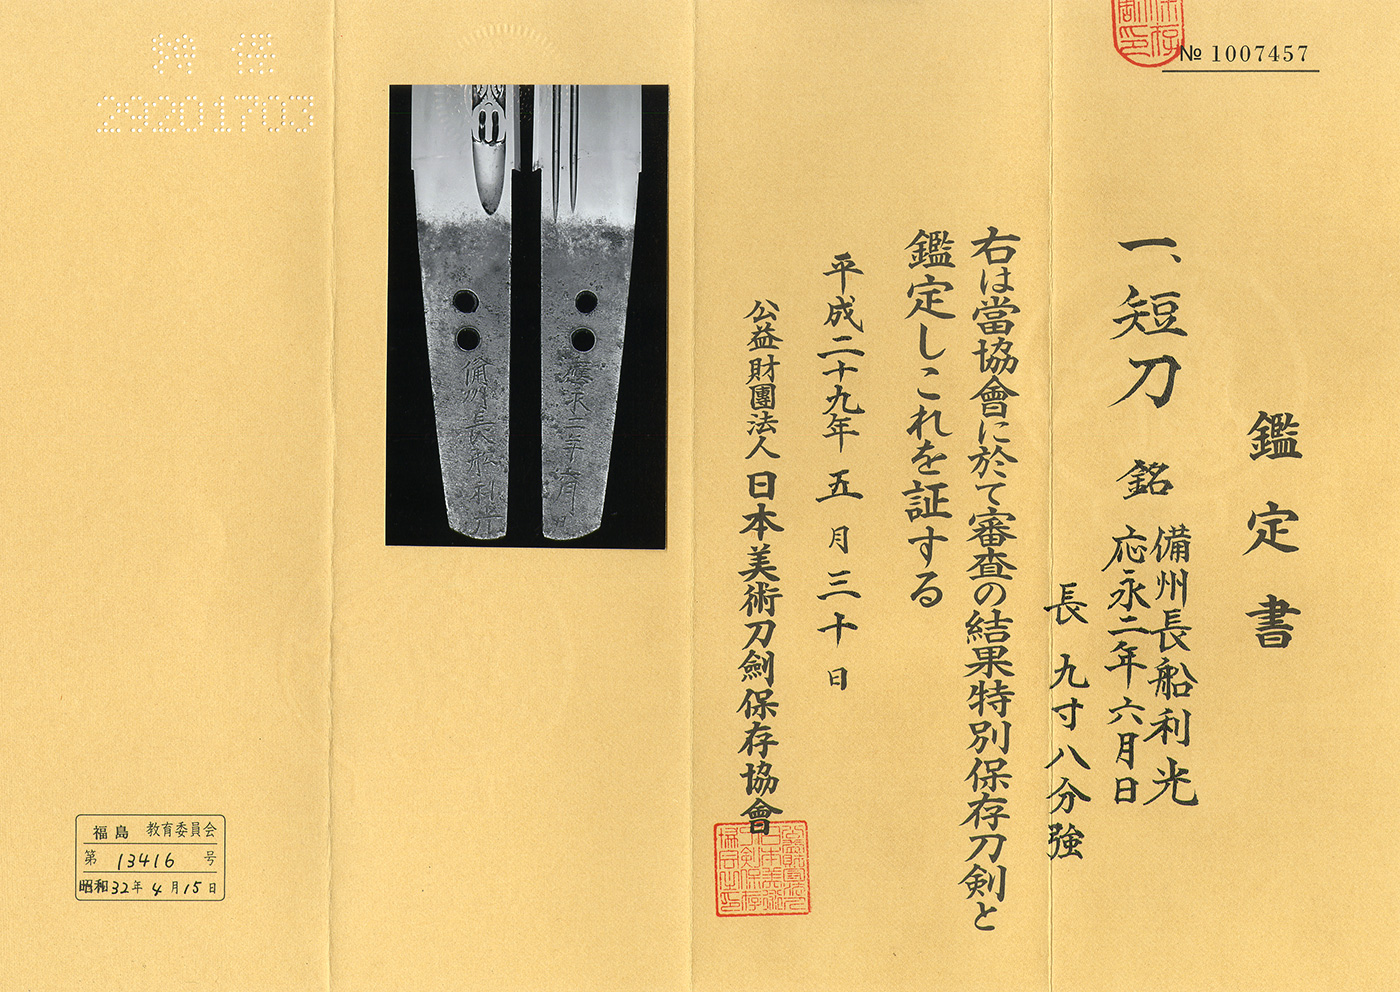 № 1007457
鑑定書
一、短刀 銘 備州長船利光
応永二年六月日
長 九寸八分強
右は當協會に於て審査の結果特別保存刀剣と
鑑定しこれを証する
平成二十九年 五月三十日
公益財團法人 日本美術刀劍保存協會
備州長船利光
應永二年六月日
特保
29201703
福島 教育委員会
第 13416 号
昭和32年4月15日